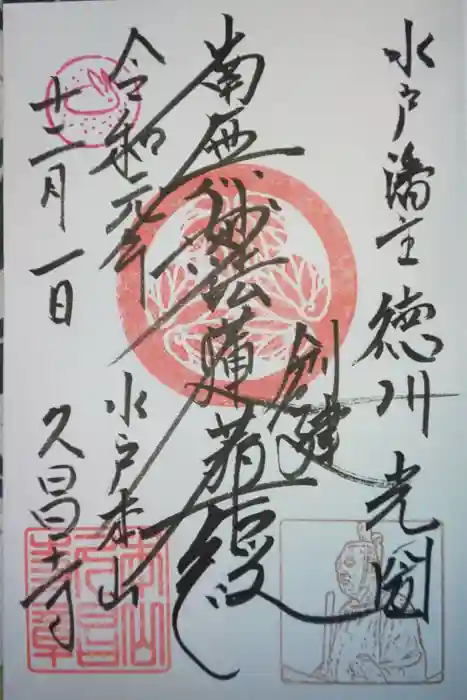 水戸藩主 徳川光圀
創建
南無妙法蓮華経
令和元年
十二月一日
水戸本山
久昌寺